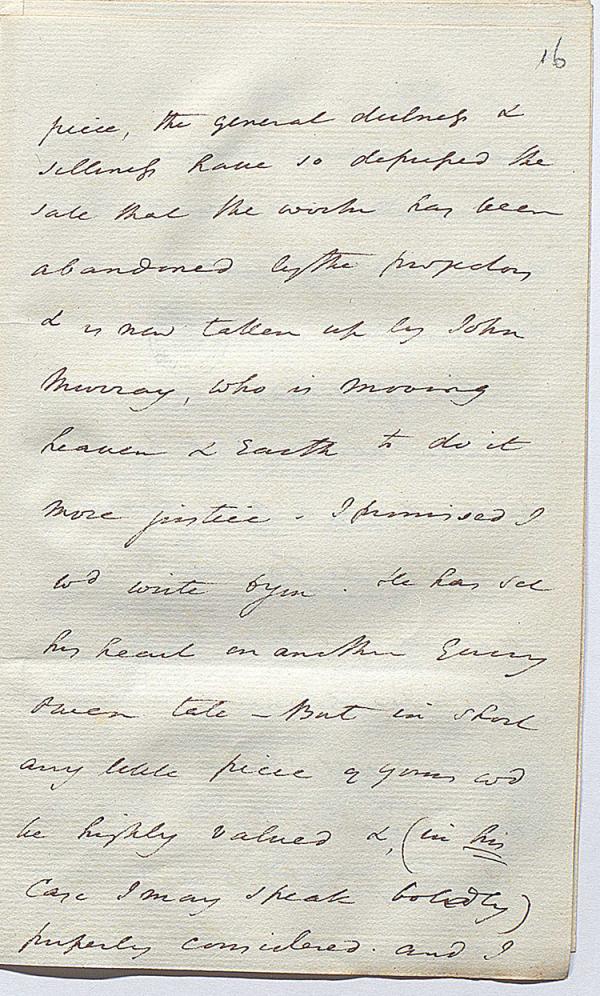 16
piece, the general dulness &
silliness have so depressed the
sale that the work has been
abandoned by the proprietors
& is now taken up by John
Murray, who is moving
heaven & Earth to do it
more justice - I promised I
wd write to you. He has set
his heart on another
Owen tale - But in short
any little piece of yours wd
be highly valued &, (in his
case I may speak boldly)
properly considered. and I